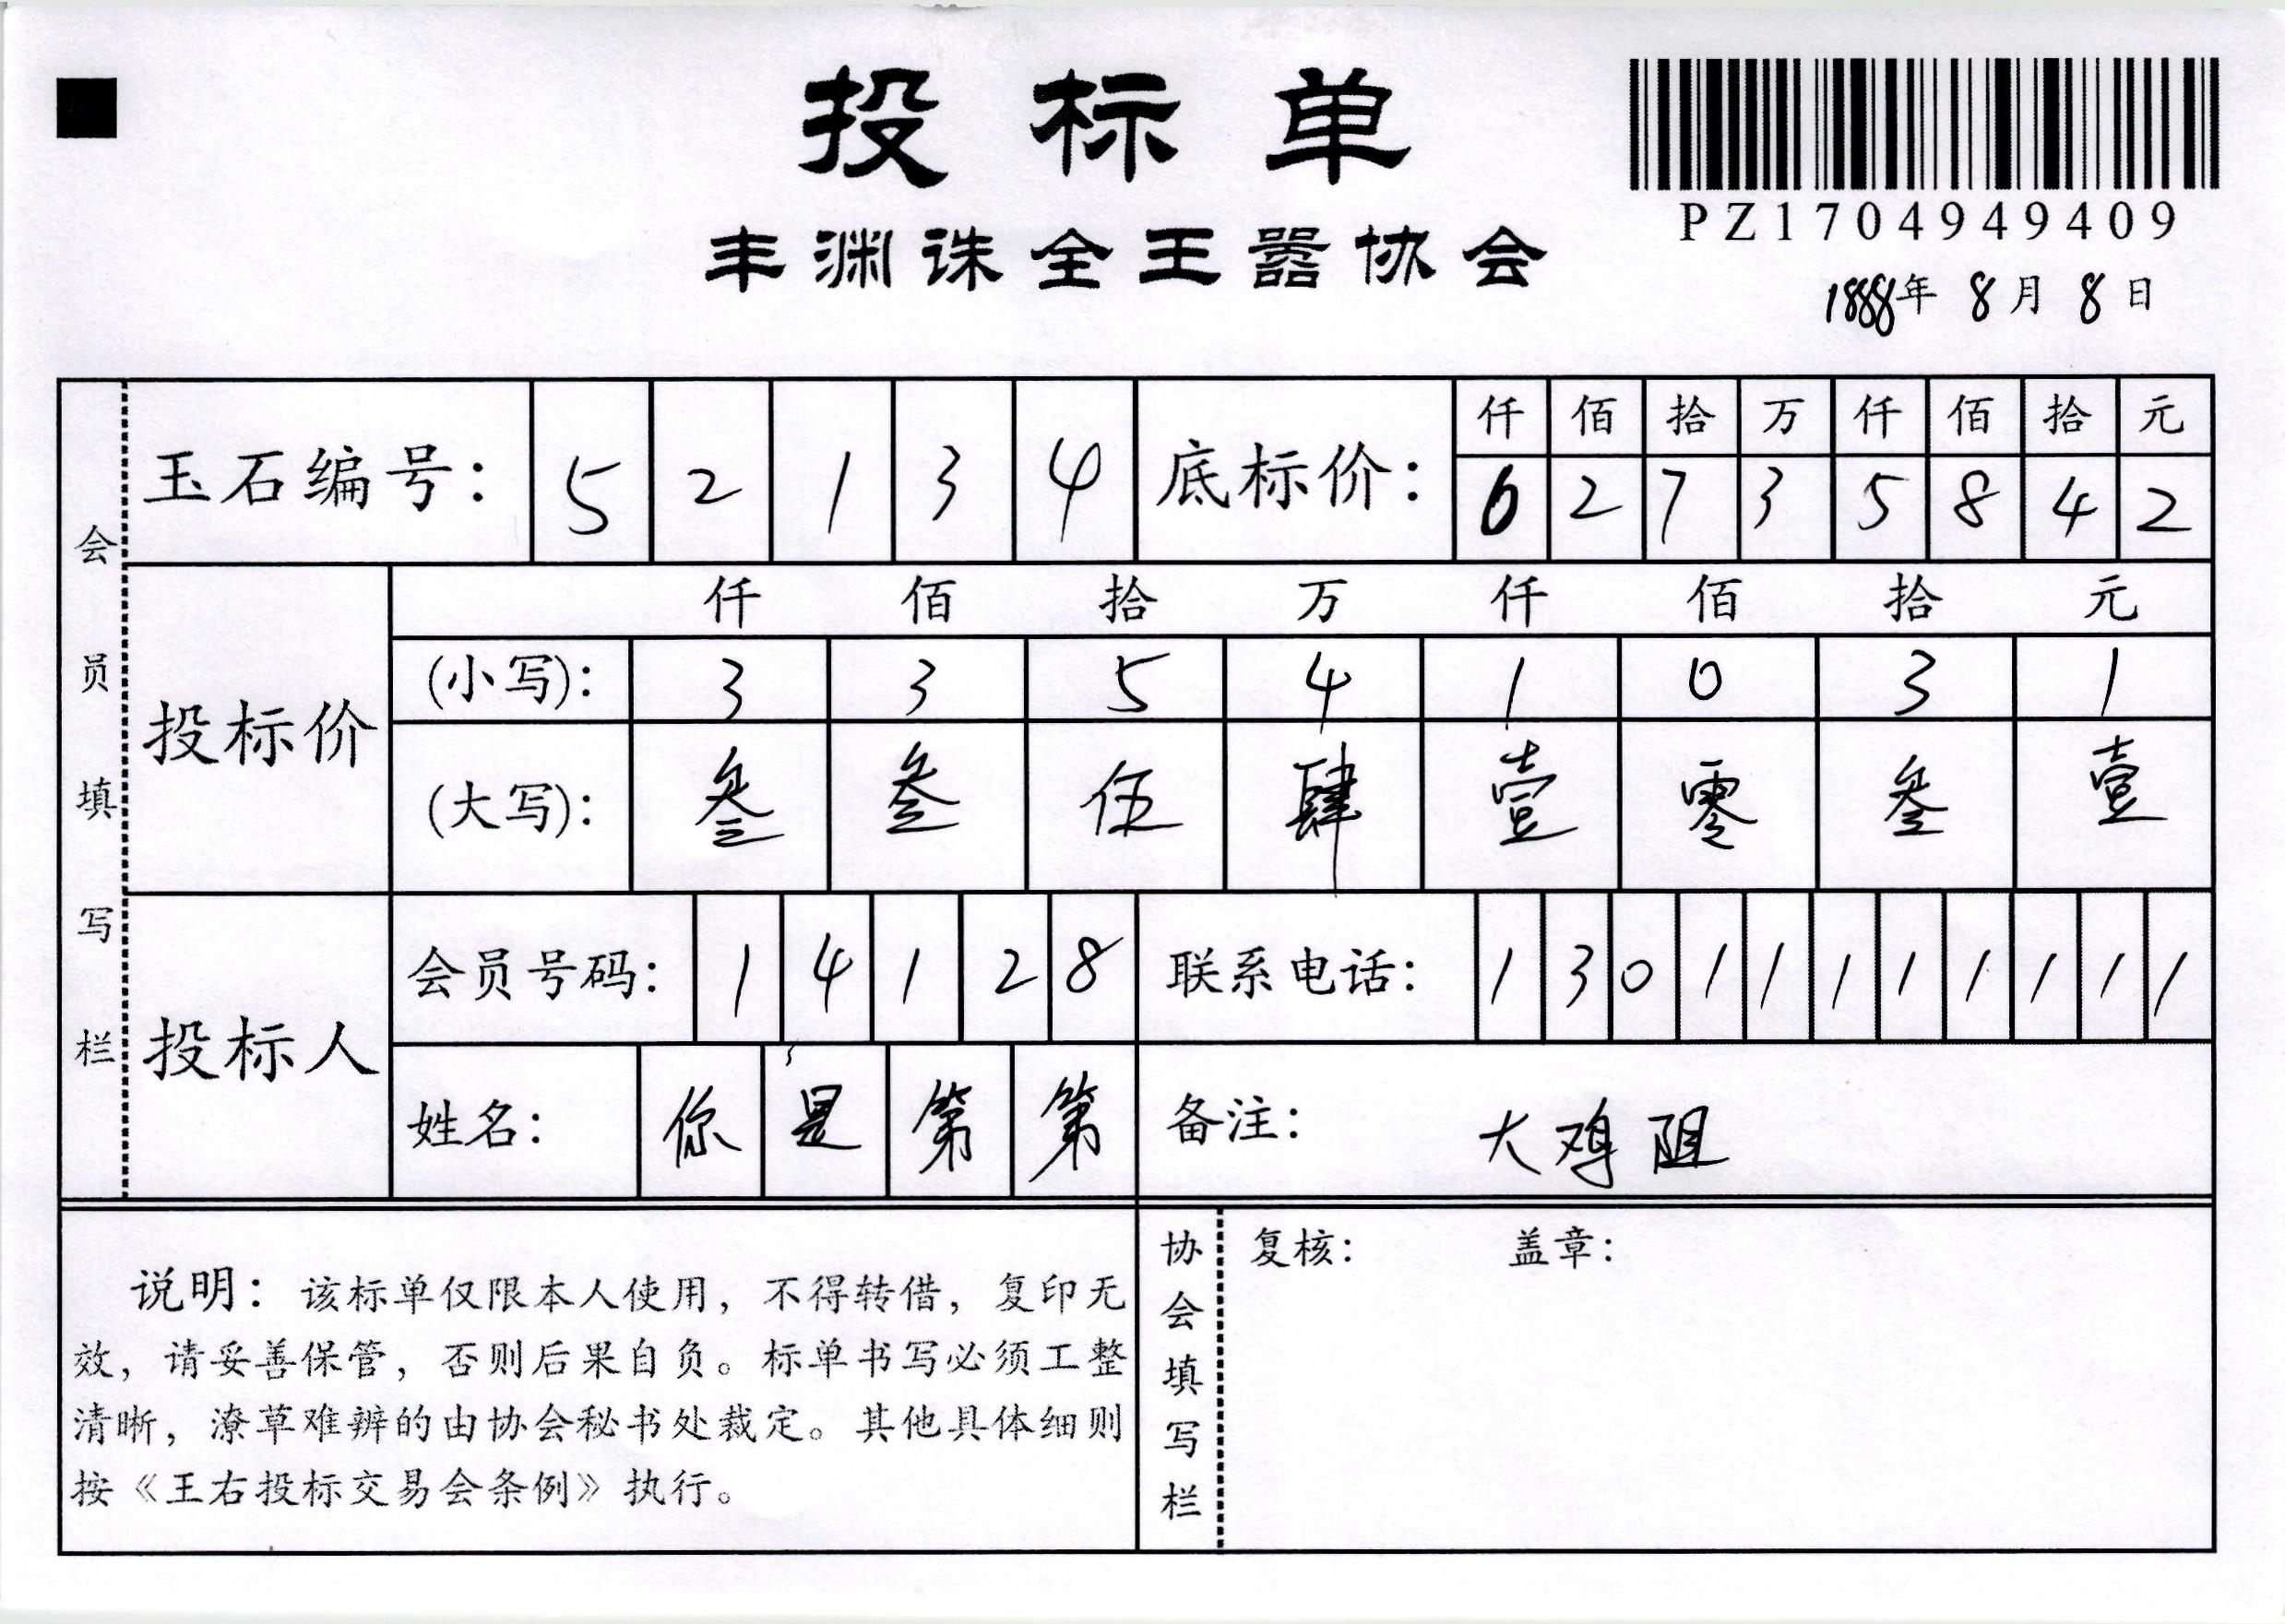 投标单
PZ1704949409
丰渊诛全王嚣协会
1888年8月8日
会员填写栏
玉石编号: 5 2 1 3 4
底标价: 仟 佰 拾 万 仟 佰 拾 元
6 2 7 3 5 8 4 2
投标价
仟 佰 拾 万 仟 佰 拾 元
(小写): 3 3 5 4 1 0 3 1
(大写): 叁 叁 伍 肆 壹 零 叁 壹
投标人
会员号码: 1 4 1 2 8
联系电话: 1 3 0 1 1 1 1 1 1 1 1
姓名: 你 是 第 第
备注: 大鸡阻
说明：该标单仅限本人使用，不得转借，复印无
效，请妥善保管，否则后果自负。标单书写必须工整
清晰，潦草难辨的由协会秘书处裁定。其他具体细则
按《王右投标交易会条例》执行。
协会填写栏
复核: 盖章: